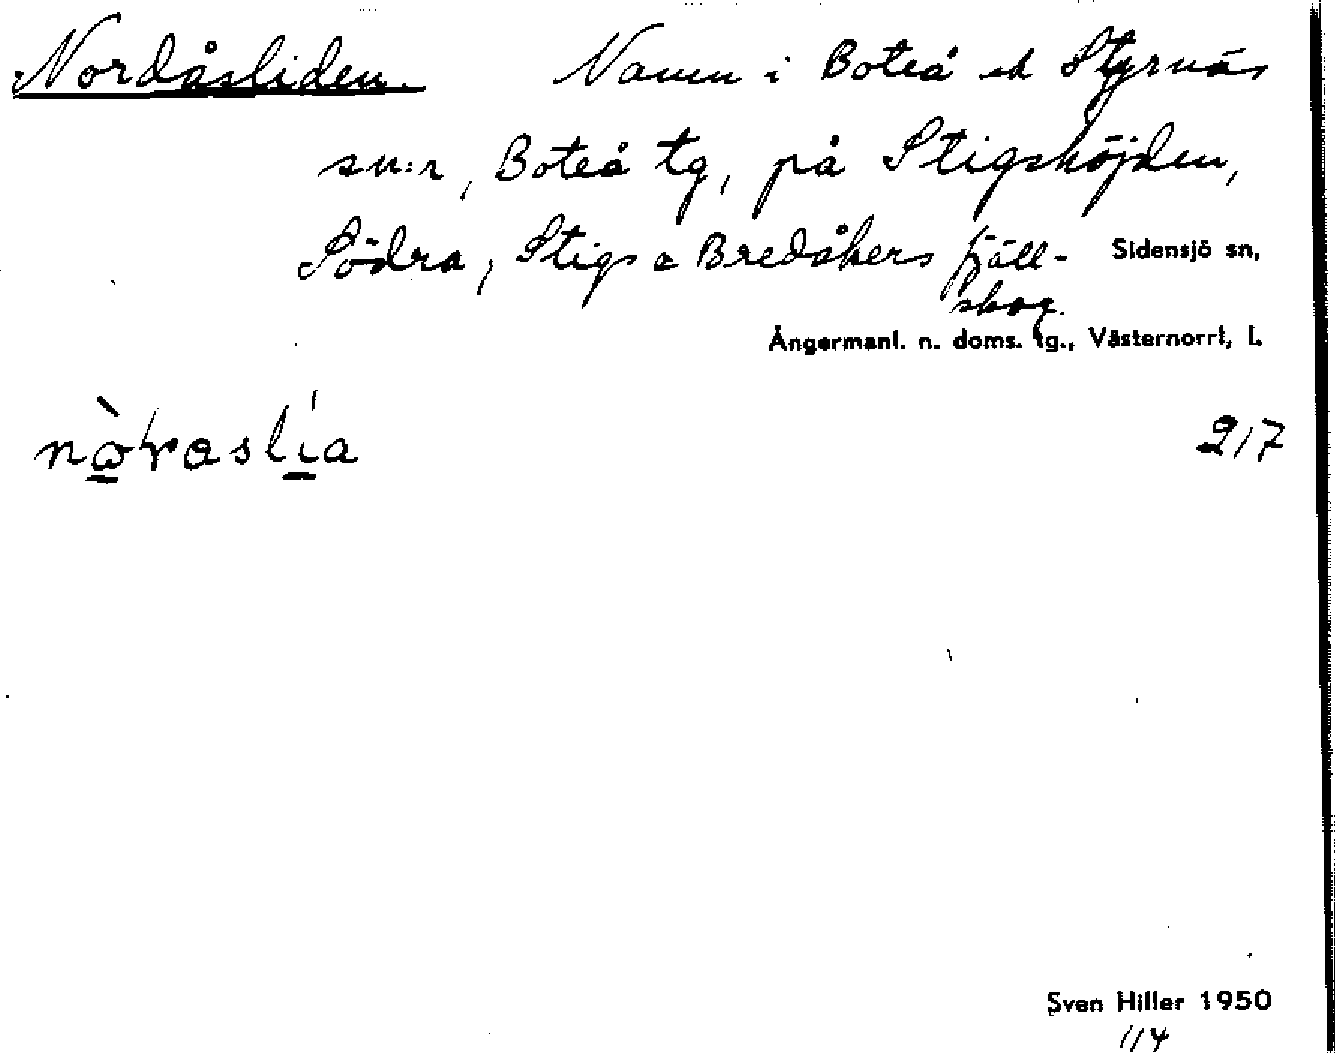 Nordåsliden. Namn i Boteå och Styrnäs
sn:r, Boteå tg, på Stigshöjden,
Södra, Stigs o Bredåkers fjäll- Sidensjö sn,
skog.
Ångermanl. n. doms. tg., Västernorrl, l.
217
Sven Hiller 1950
114